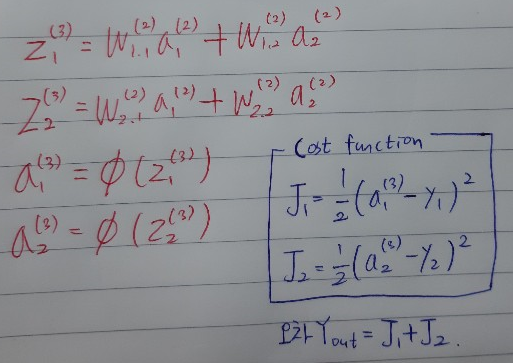 z₁⁽³⁾ = W₁.₁⁽²⁾ a₁⁽²⁾ + W₁.₂⁽²⁾ a₂⁽²⁾
z₂⁽³⁾ = W₂.₁⁽²⁾ a₁⁽²⁾ + W₂.₂⁽²⁾ a₂⁽²⁾
a₁⁽³⁾ = φ(z₁⁽³⁾)
a₂⁽³⁾ = φ(z₂⁽³⁾)
Cost function
J₁ = ½(a₁⁽³⁾ - y₁)²
J₂ = ½(a₂⁽³⁾ - y₂)²
오차 Yout = J₁ + J₂.